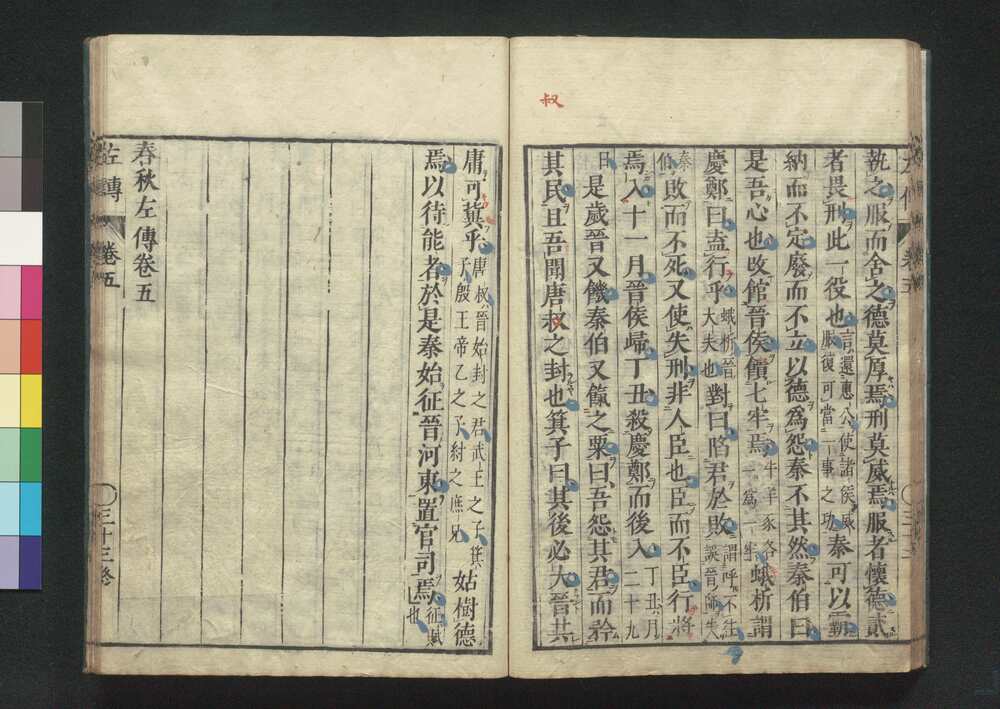 叔
執之服而舍之德莫厚焉刑莫威焉服者懷德貳
者畏刑此一役也言還惠公使諸侯威服復可當一事之功秦可以霸
納而不定廢而不立以德爲怨秦不其然秦伯曰
是吾心也改館晉侯饋七牢焉牛羊豕各一爲一牢蛾析謂
慶鄭曰盍行乎蛾析晉大夫也對曰陷君於敗謂呼不往誤晉師失
秦伯敗而不死又使失刑非人臣也臣而不臣行將
焉入十一月晉侯歸丁丑殺慶鄭而後入丁丑月二十九
日是歲晉又饑秦伯又餼之粟曰吾怨其君而矜
其民且吾聞唐叔之封也箕子曰其後必大晉其
庸可冀乎唐叔晉始封之君武王之子箕子殷王帝乙之子紂之庶兄姑樹德
焉以待能者於是秦始征晉河東置官司焉征賦也
春秋左傳卷五
左傳 卷五 三十三終